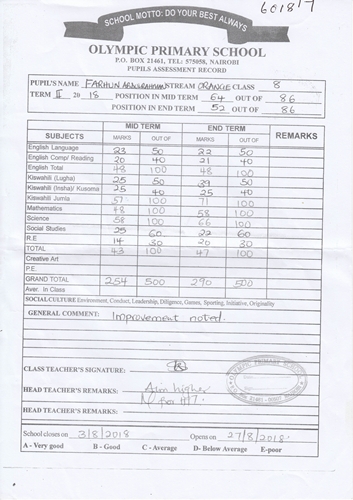 601817
SCHOOL MOTTO: DO YOUR BEST ALWAYS
OLYMPIC PRIMARY SCHOOL
P.O. BOX 21461, TEL: 575058, NAIROBI
PUPILS ASSESSMENT RECORD
PUPIL'S NAME FARHUN STREAM ORANGE CLASS 8
TERM II 20 18 POSITION IN MID TERM 64 OUT OF 86
POSITION IN END TERM 52 OUT OF 86
MID TERM END TERM REMARKS
SUBJECTS MARKS OUT OF MARKS OUT OF
English Language 23 50 22 50
English Comp/ Reading 20 40 21 40
English Total 48 100 48 100
Kiswahili (Lugha) 25 50 39 50
Kiswahili (Insha)/ Kusoma 25 40 25 40
Kiswahili Jumla 57 100 71 100
Mathematics 48 100 58 100
Science 58 100 66 100
Social Studies 25 60 22 60
R.E 14 30 20 30
TOTAL 43 100 47 100
Creative Art
P.E.
GRAND TOTAL 254 500 290 500
Aver. In Class
SOCIAL/CULTURE Environment, Conduct, Leadership, Diligence, Games, Sporting, Initiative, Originality
GENERAL COMMENT: Improvement noted.
CLASS TEACHER'S SIGNATURE:
OLYMPIC PRIMARY SCHOOL
HEAD TEACHER'S REMARKS: Aim higher
HEAD TEACHER'S REMARKS:
School closes on 3/8/2018 Opens on 27/8/2018
A - Very good B - Good C - Average D- Below Average E-poor